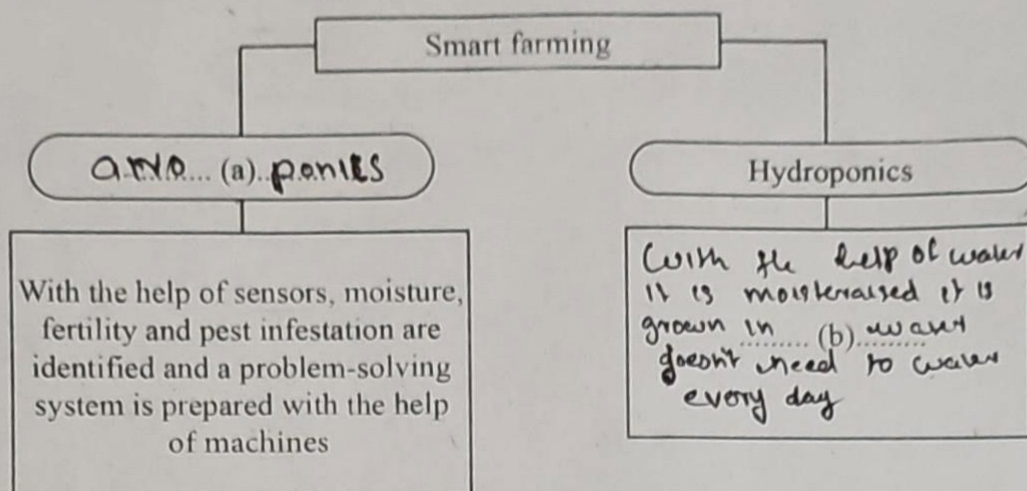 Smart farming
ano... (a)..ponies
Hydroponics
With the help of sensors, moisture,
fertility and pest infestation are
identified and a problem-solving
system is prepared with the help
of machines
With the help of water
it is moisteraised it is
grown in ......... (b) ......... water
doesn't need to water
every day